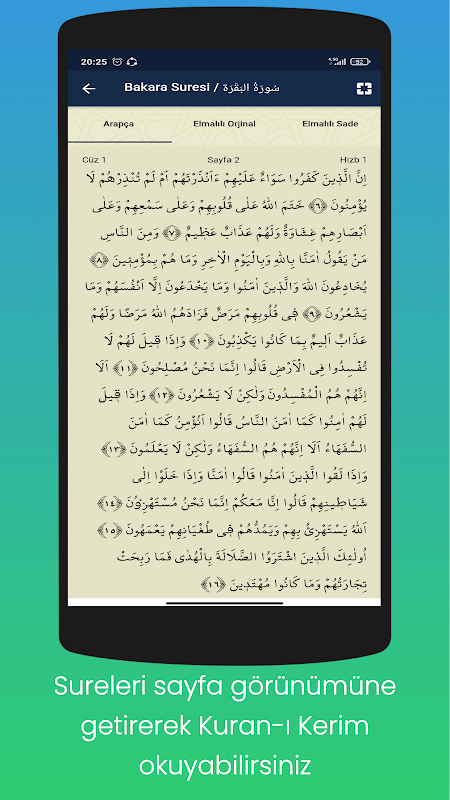 20:25
52
Bakara Suresi / سُورَةُ البَقَرَة
Arapça
Elmalılı Orjinal
Elmalılı Sade
Cüz 1
Sayfa 2
Hizb 1
اِنَّ الَّذٖينَ كَفَرُوا سَوَٓاءٌ عَلَيْهِمْ ءَاَنْذَرْتَهُمْ اَمْ لَمْ تُنْذِرْهُمْ لَا
يُؤْمِنُونَ ﴿٦﴾ خَتَمَ اللّٰهُ عَلٰى قُلُوبِهِمْ وَعَلٰى سَمْعِهِمْ وَعَلٰٓى
اَبْصَارِهِمْ غِشَاوَةٌ وَلَهُمْ عَذَابٌ عَظٖيمٌ ﴿٧﴾ وَمِنَ النَّاسِ
مَنْ يَقُولُ اٰمَنَّا بِاللّٰهِ وَبِالْيَوْمِ الْاٰخِرِ وَمَا هُمْ بِمُؤْمِنٖينَ ﴿٨﴾
يُخَادِعُونَ اللّٰهَ وَالَّذٖينَ اٰمَنُوا وَمَا يَخْدَعُونَ اِلَّٓا اَنْفُسَهُمْ وَمَا
يَشْعُرُونَ ﴿٩﴾ فٖى قُلُوبِهِمْ مَرَضٌ فَزَادَهُمُ اللّٰهُ مَرَضًا وَلَهُمْ
عَذَابٌ اَلٖيمٌ بِمَا كَانُوا يَكْذِبُونَ ﴿١٠﴾ وَاِذَا قٖيلَ لَهُمْ لَا
تُفْسِدُوا فِى الْاَرْضِ قَالُٓوا اِنَّمَا نَحْنُ مُصْلِحُونَ ﴿١١﴾ اَلَٓا
اِنَّهُمْ هُمُ الْمُفْسِدُونَ وَلٰكِنْ لَا يَشْعُرُونَ ﴿١٢﴾ وَاِذَا قٖيلَ
لَهُمْ اٰمِنُوا كَمَٓا اٰمَنَ النَّاسُ قَالُٓوا اَنُؤْمِنُ كَمَٓا اٰمَنَ
السُّفَهَٓاءُ اَلَٓا اِنَّهُمْ هُمُ السُّفَهَٓاءُ وَلٰكِنْ لَا يَعْلَمُونَ ﴿١٣﴾
وَاِذَا لَقُوا الَّذٖينَ اٰمَنُوا قَالُٓوا اٰمَنَّا وَاِذَا خَلَوْا اِلٰى
شَيَاطٖينِهِمْ قَالُٓوا اِنَّا مَعَكُمْ اِنَّمَا نَحْنُ مُسْتَهْزِؤُنَ ﴿١٤﴾
اَللّٰهُ يَسْتَهْزِئُ بِهِمْ وَيَمُدُّهُمْ فٖى طُغْيَانِهِمْ يَعْمَهُونَ ﴿١٥﴾
اُولٰٓئِكَ الَّذٖينَ اشْتَرَوُا الضَّلَالَةَ بِالْهُدٰى فَمَا رَبِحَتْ
تِجَارَتُهُمْ وَمَا كَانُوا مُهْتَدٖينَ ﴿١٦﴾
Sureleri sayfa görünümüne
getirerek Kuran-ı Kerim
okuyabilirsiniz